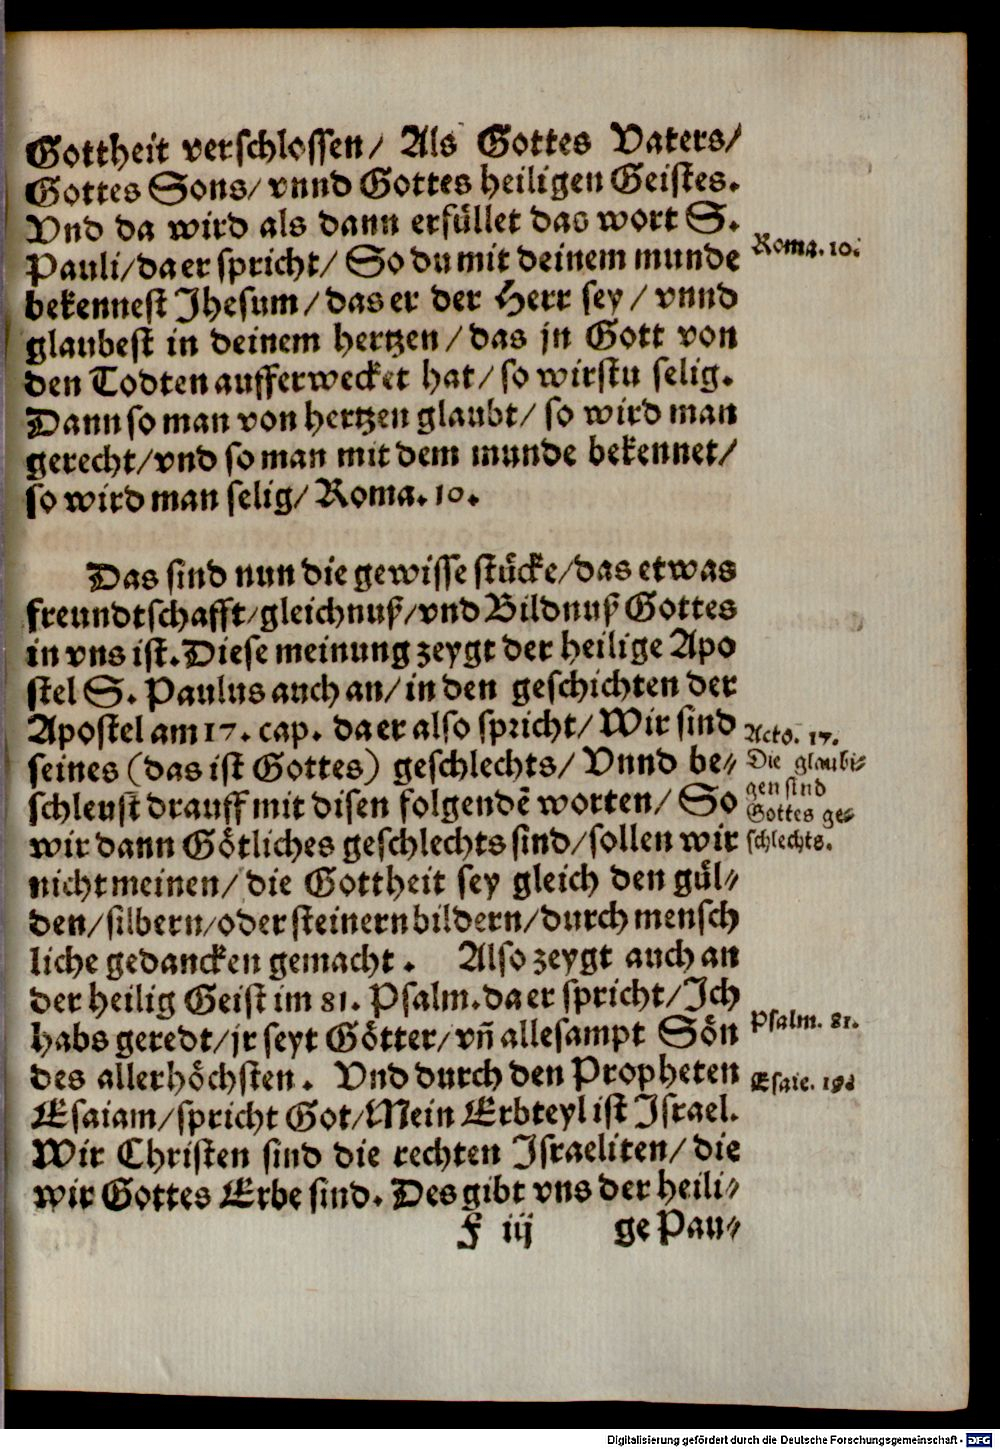 Gottheit verschlossen/ Als Gottes Vaters/
Gottes Sons/ vnnd Gottes heiligen Geistes.
Vnd da wird als dann erfüllet das wort S.
Pauli/da er spricht/ So du mit deinem munde
Roma. 10.
bekennest Jhesum/das er der Herr sey/ vnnd
glaubest in deinem hertzen/das jn Gott von
den Todten aufferwecket hat/ so wirstu selig.
Dann so man von hertzen glaubt/ so wird man
gerecht/vnd so man mit dem munde bekennet/
so wird man selig/ Roma. 10.
Das sind nun die gewisse stücke/das etwas
freundtschafft/gleichnuß/vnd Bildnuß Gottes
in vns ist. Diese meinung zeygt der heilige Apo
stel S. Paulus auch an/ in den geschichten der
Apostel am 17. cap. da er also spricht/ Wir sind
Acto. 17.
seines (das ist Gottes) geschlechts/ Vnnd be⸗
Die glaubi⸗
schleust drauff mit disen folgendẽ worten/ So
gen sind
Gottes ge⸗
wir dann Götliches geschlechts sind/sollen wir
schlechts.
nicht meinen/ die Gottheit sey gleich den gül⸗
den/silbern/oder steinern bildern/durch mensch
liche gedancken gemacht. Also zeygt auch an
der heilig Geist im 81. Psalm. da er spricht/Ich
habs geredt/jr seyt Götter/vñ allesampt Sön
Psalm. 81.
des allerhöchsten. Vnd durch den Propheten
Esaie. 19.
Esaiam/spricht Got/Mein Erbteyl ist Israel.
Wir Christen sind die rechten Israeliten/ die
wir Gottes Erbe sind. Des gibt vns der heili⸗
F iij ge Pau⸗
Digitalisierung gefördert durch die Deutsche Forschungsgemeinschaft - DFG